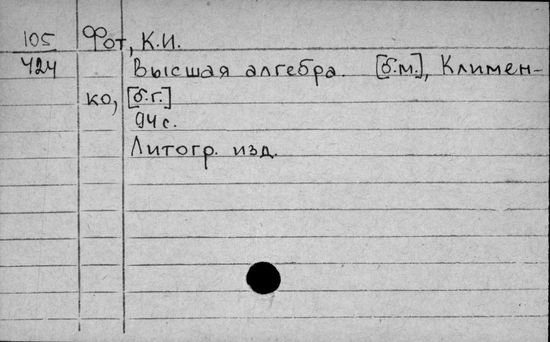 105 Фот, К.И.
424 Высшая алгебра. [б.м.], Климен-
ко, [б.г.]
94 с.
Литогр. изд.